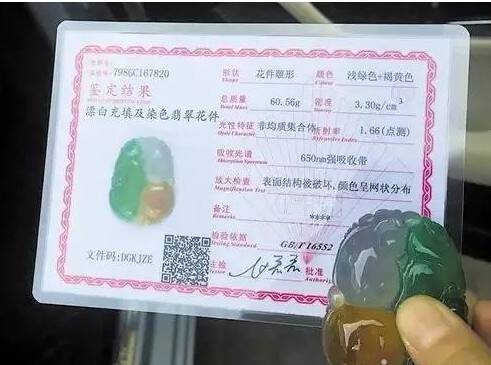 798GC167820
鉴定结果
漂白充填及染色翡翠花件
文件码:DGKJZE
形状 花件雕形 颜色 浅绿色+褐黄色
Shape
总质量 60.56g 密度 3.30g/cm³
Total Mass
光性特征 非均质集合体 折射率 1.66(点测)
Optic Character Refractive Index
吸收光谱 650nm强吸收带
Absorption Spectrum
放大检查 表面结构被破坏,颜色呈网状分布
Magnification Test
备注 ****
Remarks
检验依据 GB/T 16552
Testing Standard
主检 批准